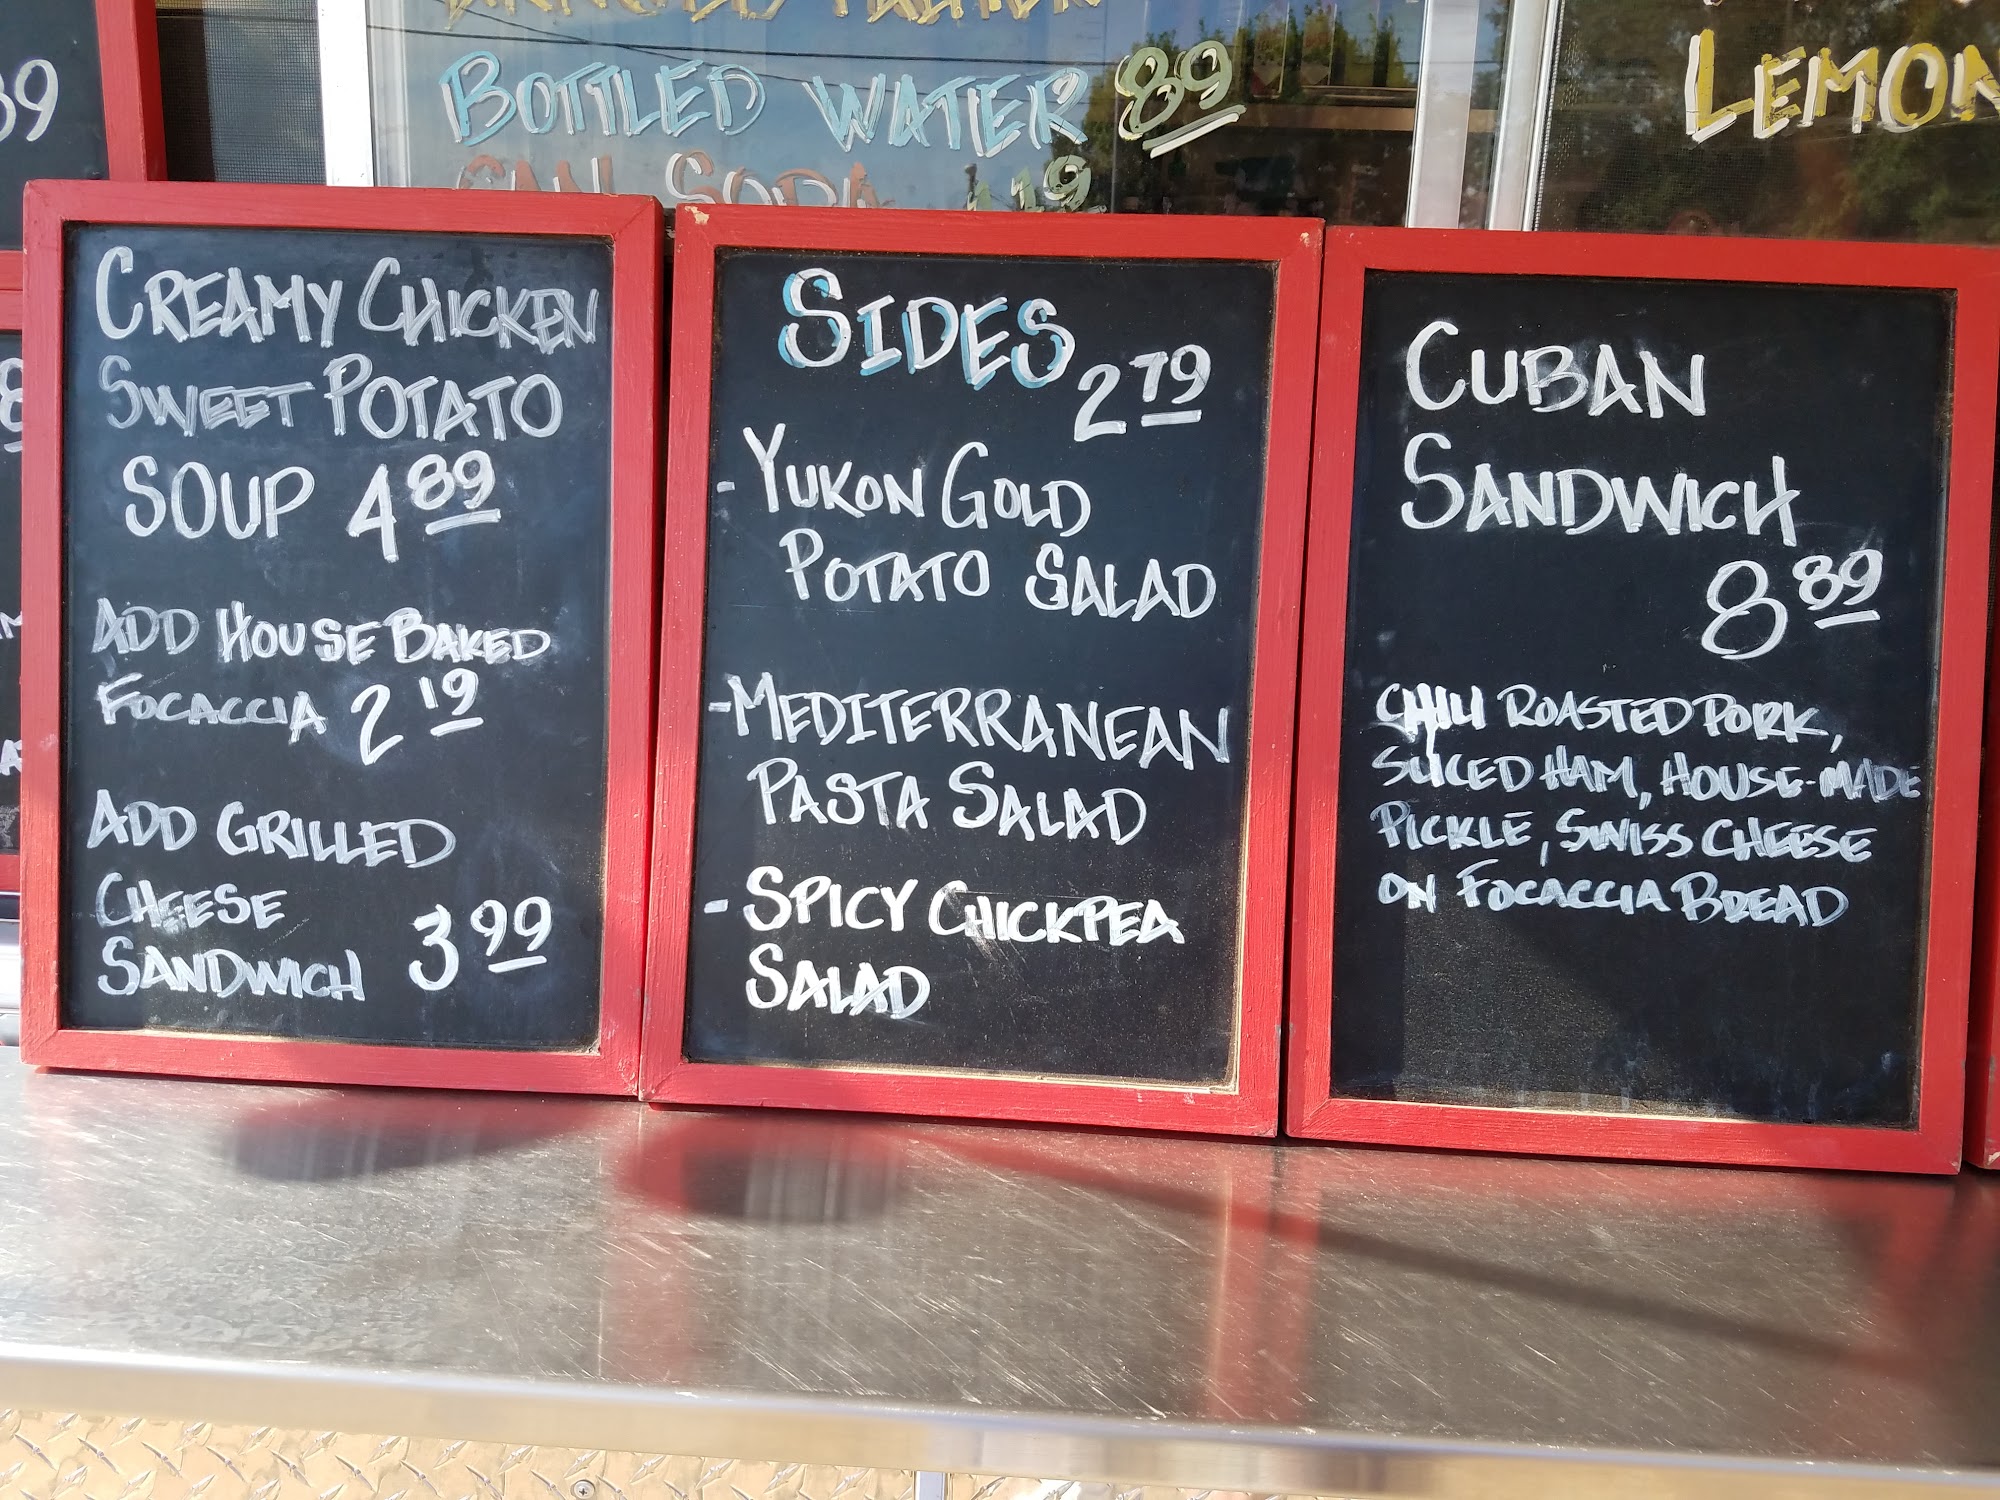 BOTTLED WATER 89
CAN SODA 119
LEMON
39
CREAMY CHICKEN
SWEET POTATO
SOUP 4 89
ADD HOUSE BAKED
FOCACCIA 2 19
ADD GRILLED
CHEESE
SANDWICH 3 99
SIDES
2 79
- YUKON GOLD
POTATO SALAD
- MEDITERRANEAN
PASTA SALAD
- SPICY CHICKPEA
SALAD
CUBAN
SANDWICH
8 89
CHILI ROASTED PORK,
SLICED HAM, HOUSE-MADE
PICKLE, SWISS CHEESE
ON FOCACCIA BREAD